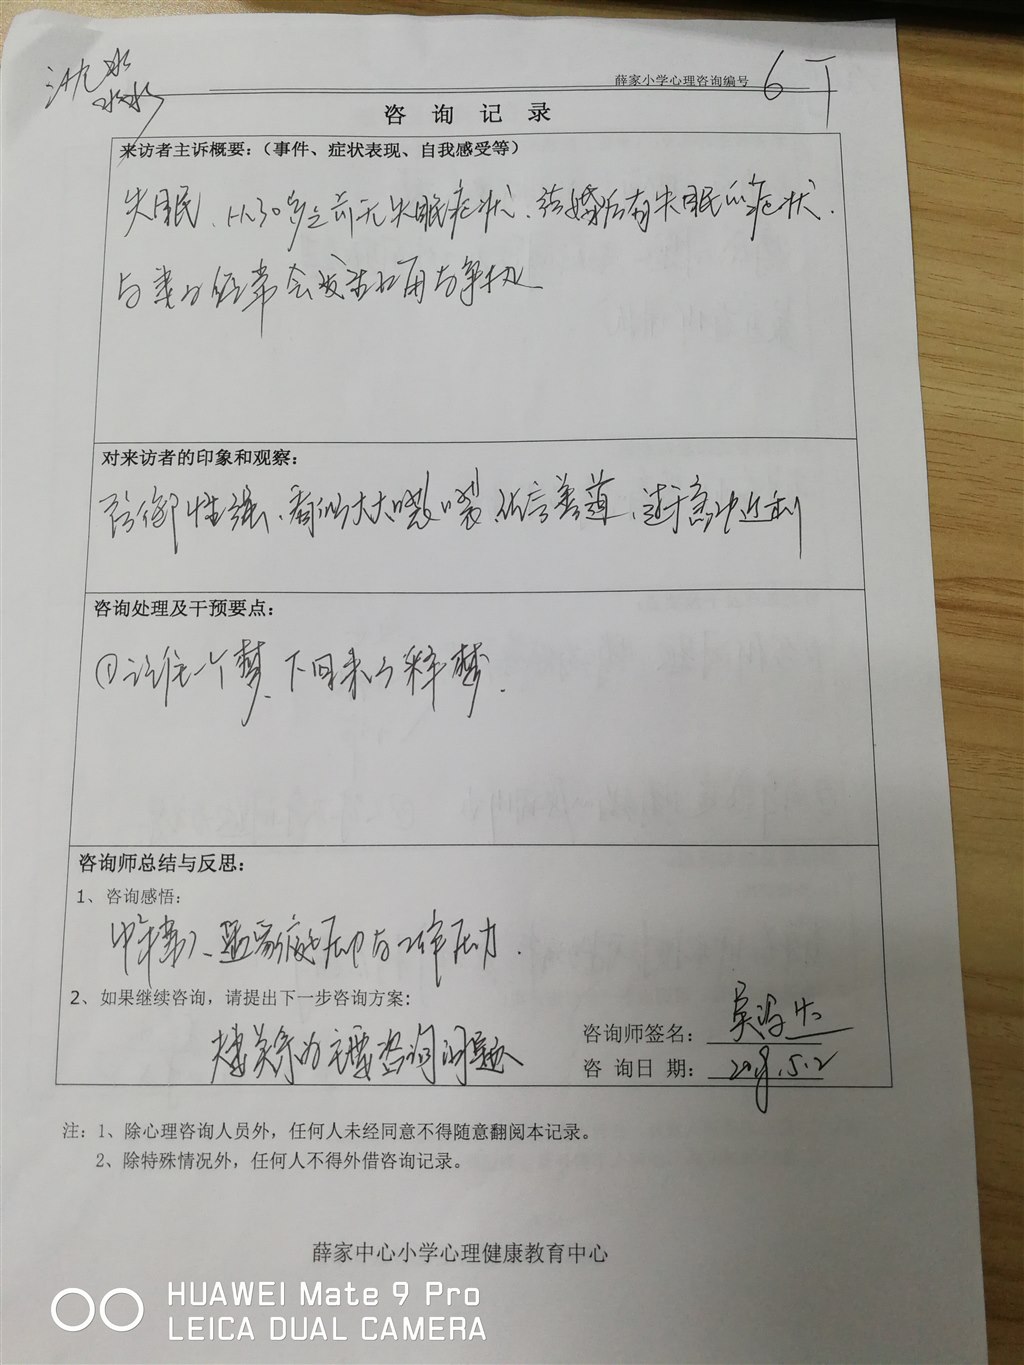 沈淼
薛家小学心理咨询编号 6下
咨 询 记 录
来访者主诉概要:(事件、症状表现、自我感受等)
失眠、从30岁之前无失眠症状、结婚后有失眠的症状.
与妻子经常会发生口角与争执
对来访者的印象和观察:
防御性强、看似大大咧咧、能言善道、过于急功近利
咨询处理及干预要点:
①记住一个梦、下回来了释梦.
咨询师总结与反思:
1、咨询感悟:
中年 压力与工作压力.
2、如果继续咨询,请提出下一步咨询方案:
夫妻关系为主要咨询问题
咨询师签名: 吴
咨 询日 期: 2019.5.2
注:1、除心理咨询人员外,任何人未经同意不得随意翻阅本记录。
2、除特殊情况外,任何人不得外借咨询记录。
薛家中心小学心理健康教育中心
HUAWEI Mate 9 Pro
LEICA DUAL CAMERA